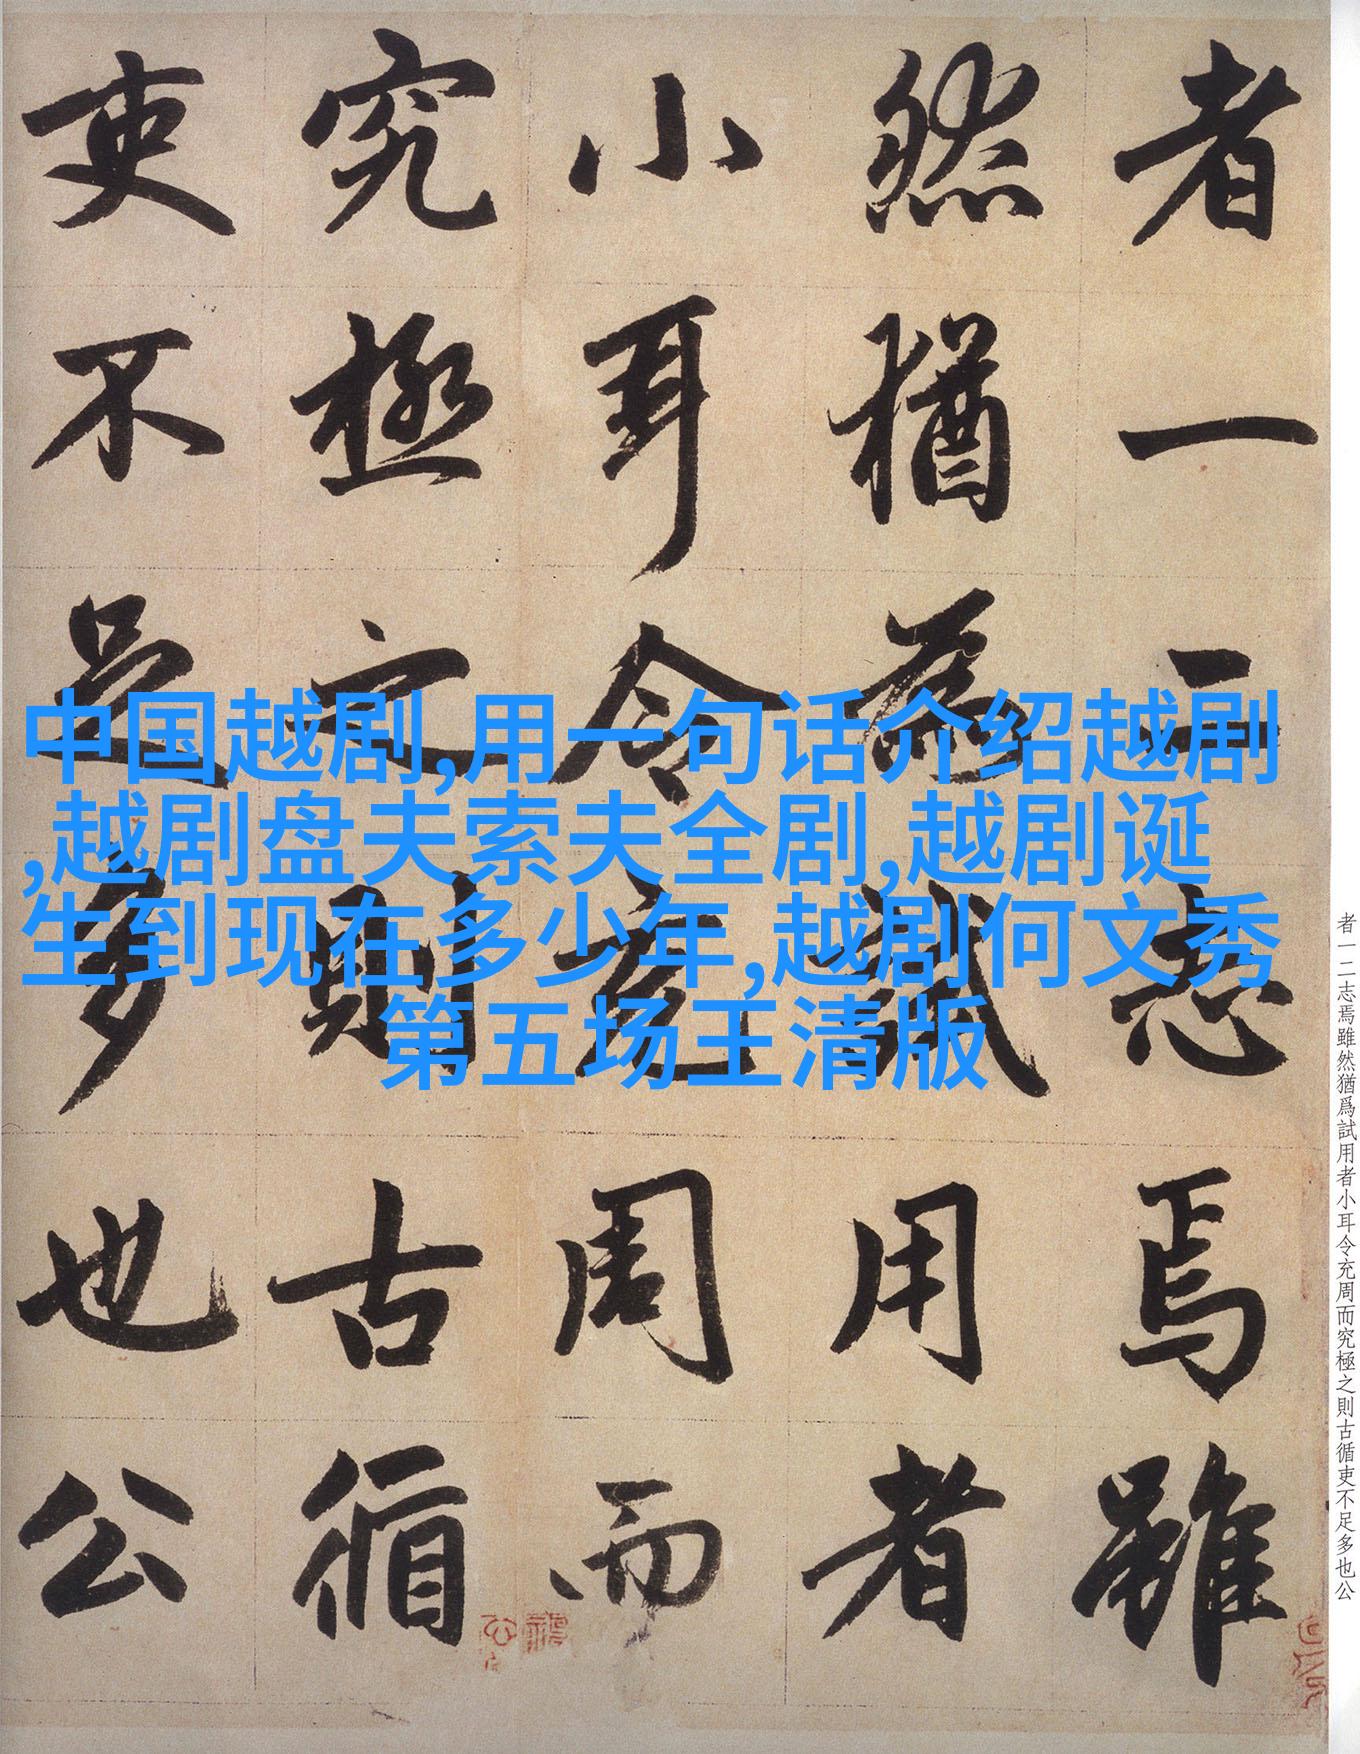 者一二志焉雖
然猶為試用者
小耳令充周而
究極之則古循
吏不足多也公
中国越剧,用一句话介绍越剧
,越剧盘夫索夫全剧,越剧诞
生到现在多少年,越剧何文秀
第五场王清版
者一二志焉雖然猶爲試用者小耳令充周而究極之則古循吏不足多也公